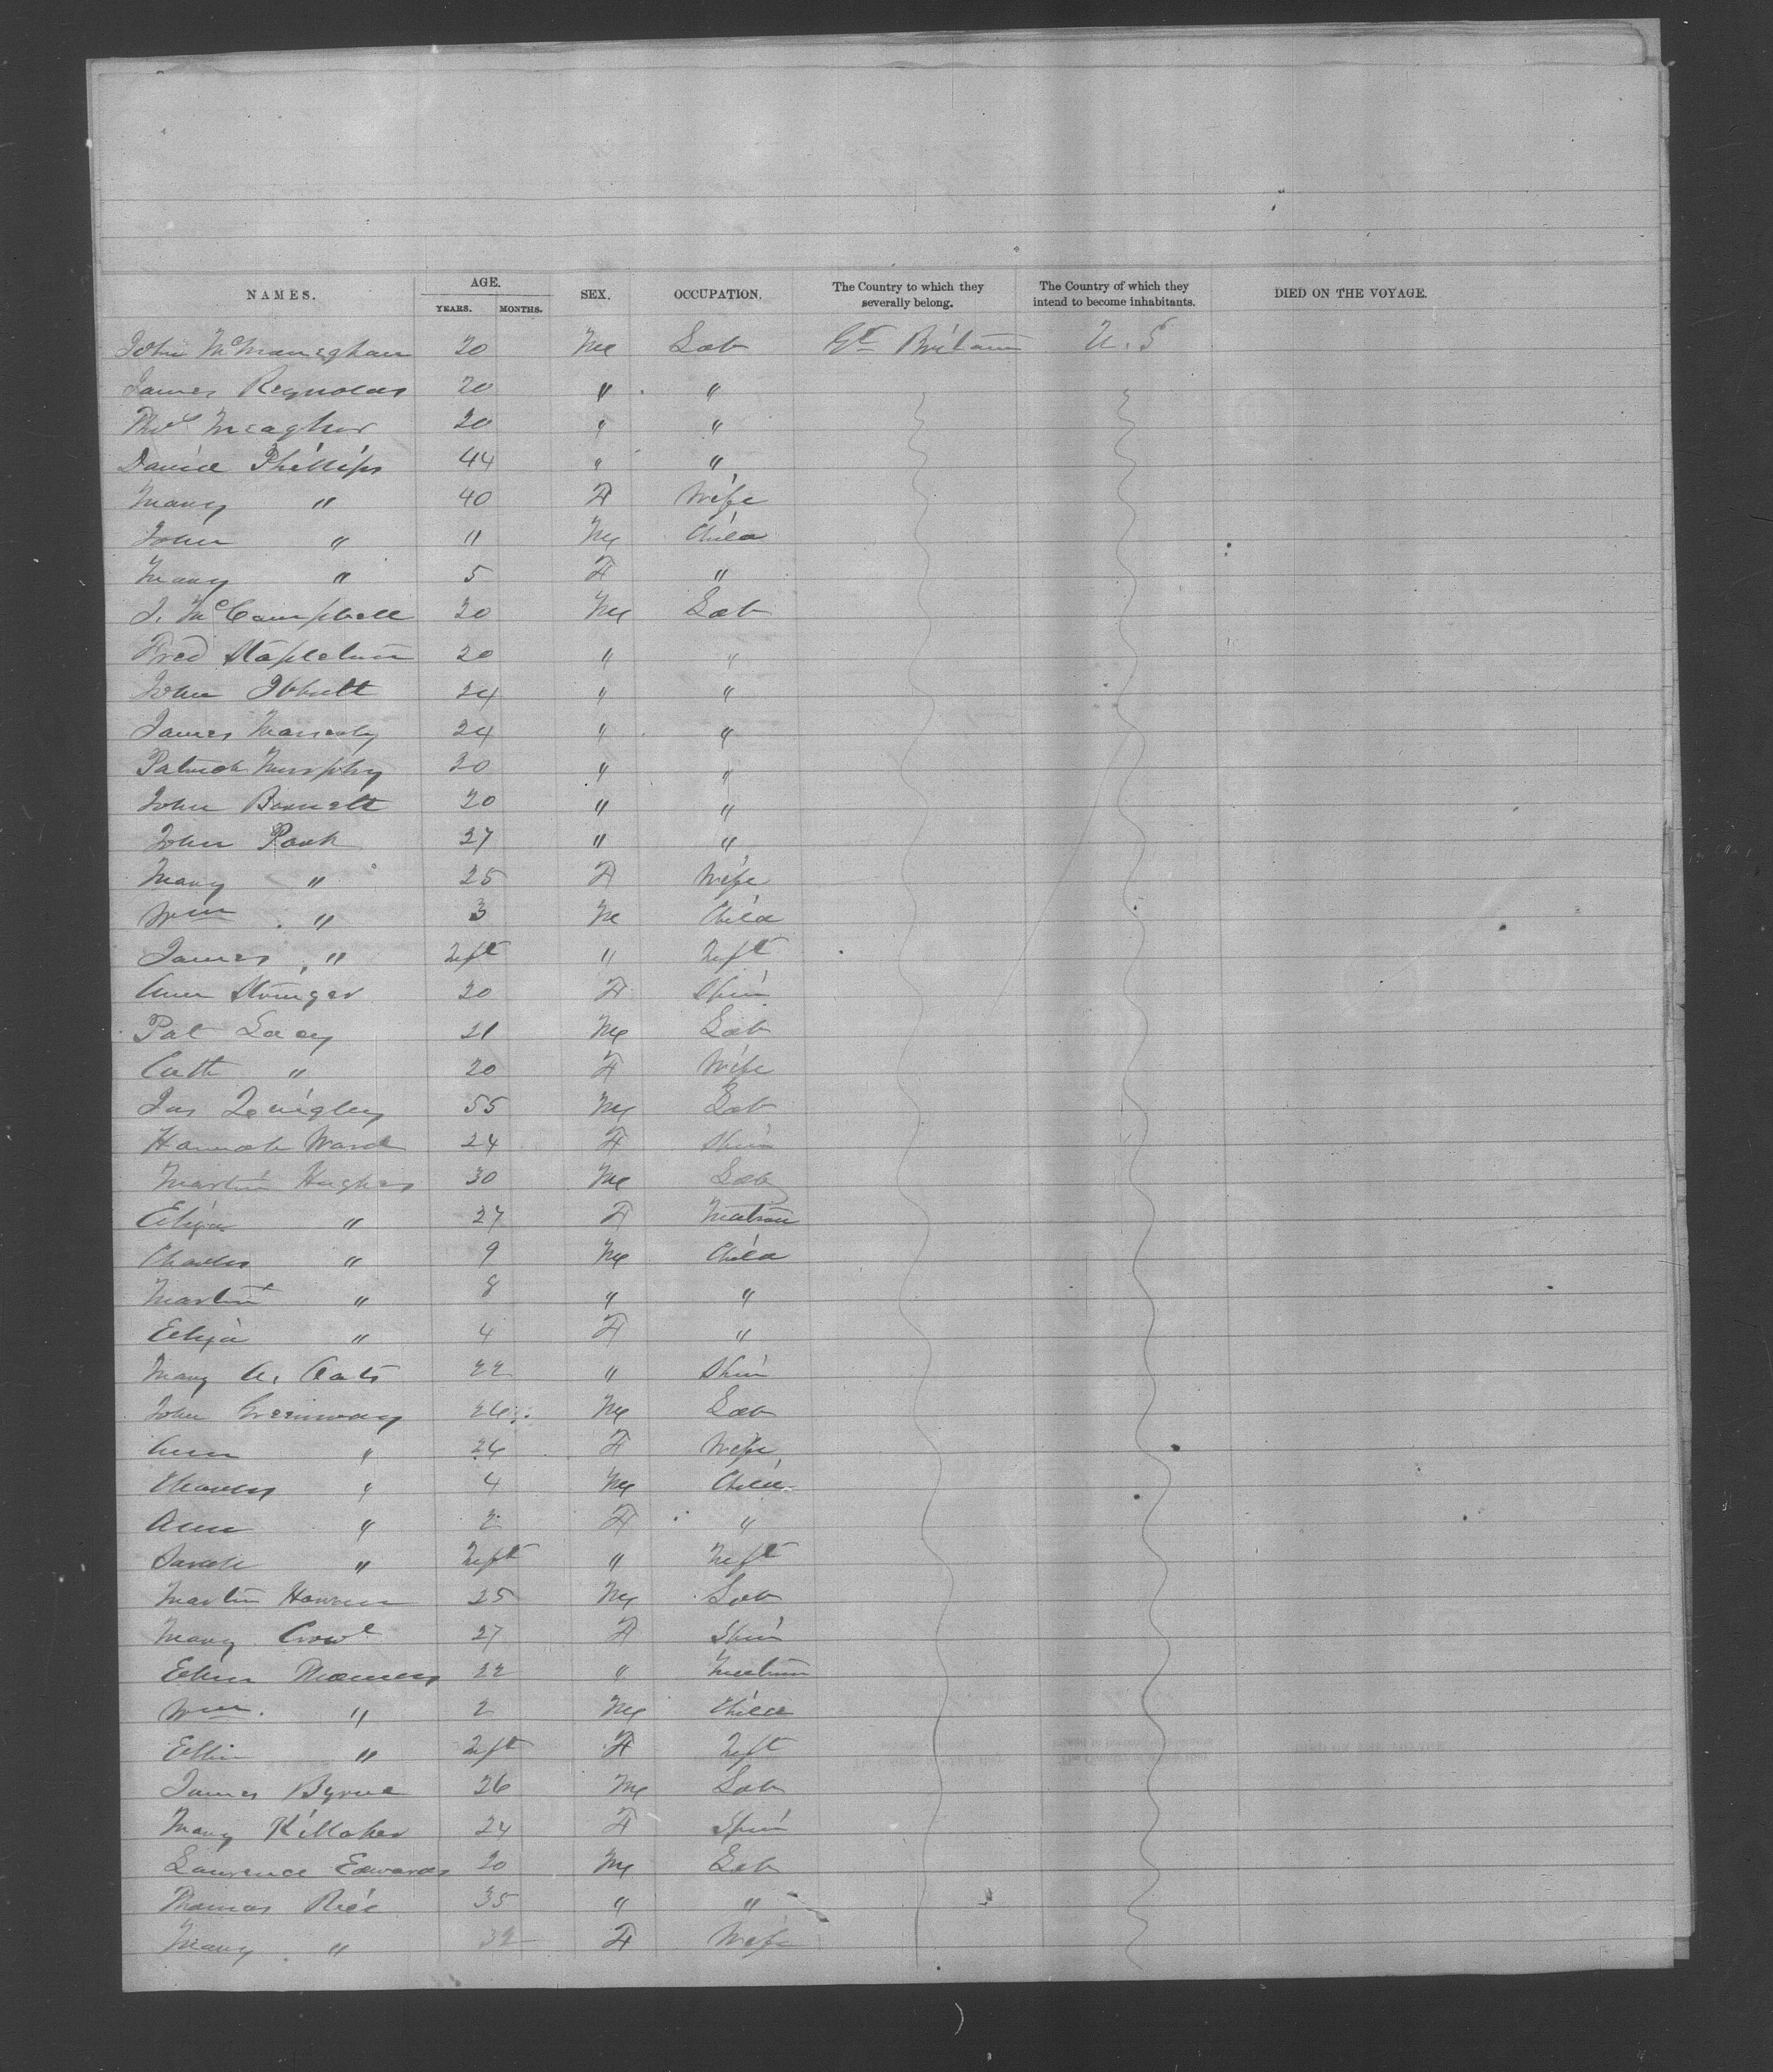 NAMES. AGE. SEX. OCCUPATION. The Country to which they severally belong. The Country of which they intend to become inhabitants. DIED ON THE VOYAGE.
YEARS. MONTHS.
John McManeghan 20 M Lab Gt Britain U.S
James Reynolds 20 " "
Thos Meagher 20 " "
David Phillips 44 " "
Mary " 40 F Wife
John " 11 M Child
Mary " 5 F "
J. McCampbell 20 M Lab
Fred Stapleton 20 " "
John Ibbott 24 " "
James 24 " "
Patrick Murphy 20 " "
John Bennett 20 " "
John Pook 27 " "
Mary " 25 F Wife
Wm " 3 M Child
James " Inft " Inft
Ann Stringer 20 F Spin
Pat Lacy 21 M Lab
Cath " 20 F Wife
Jas Quigley 55 M Lab
Hannah Ward 24 F Spin
Martin Hughes 30 M Lab
Eliza " 27 F Matron
Charles " 9 M Child
Martin " 8 " "
Eliza " 4 F "
Mary A. Oats 22 " Spin
John Greenway 26 M Lab
Ann " 26 F Wife
Charles " 4 M Child
Ann " 2 F "
Sarah " Inft " Inft
Martin 25 M Lab
Mary Crowe 27 F Spin
Ellen 22 " Matron
Wm. " 2 M Child
Ellen " Inft F Inft
James Byrne 26 M Lab
Mary Killoher 24 F Spin
Lawrence Edwards 20 M Lab
Thomas Rice 35 " "
Mary " 32 F Wife